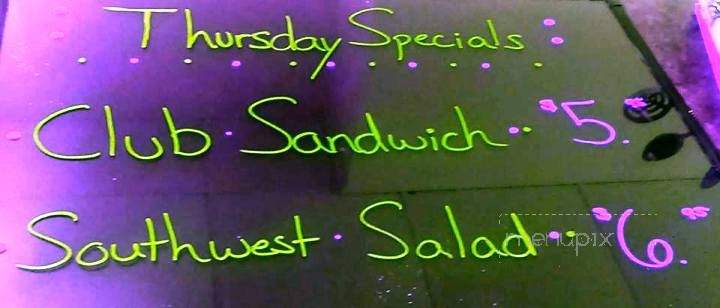 Thursday Specials:
Club Sandwich $5.
Southwest Salad $6.95
menupix